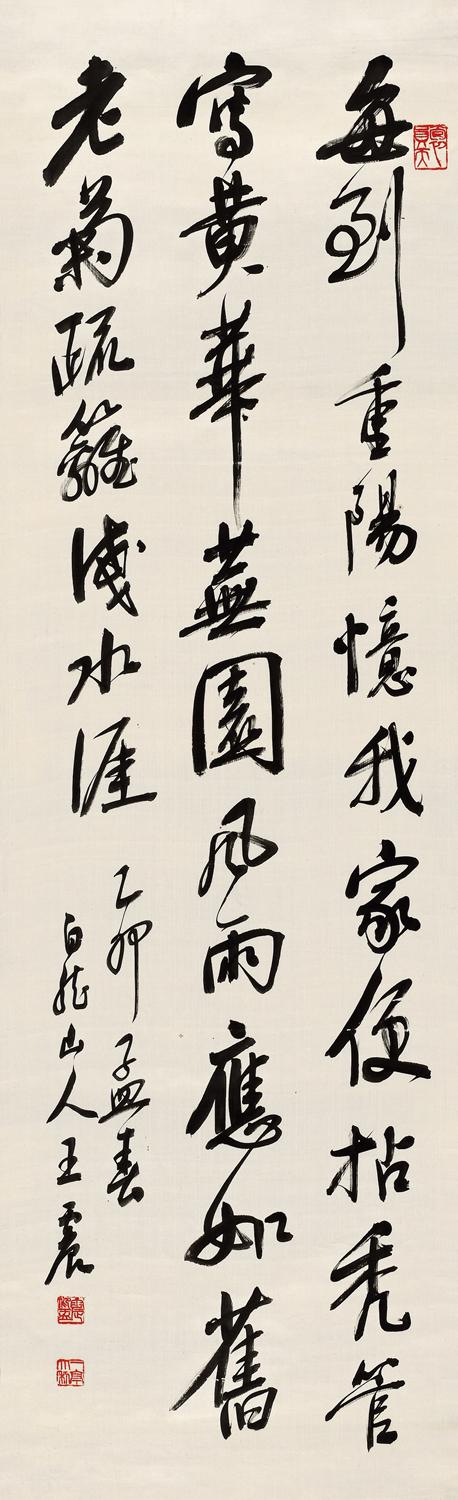 每到重陽憶我家便拈禿管
寫黃華蕪園風雨應如舊
老菊疏籬淺水涯
乙卯孟春
白龍山人王震